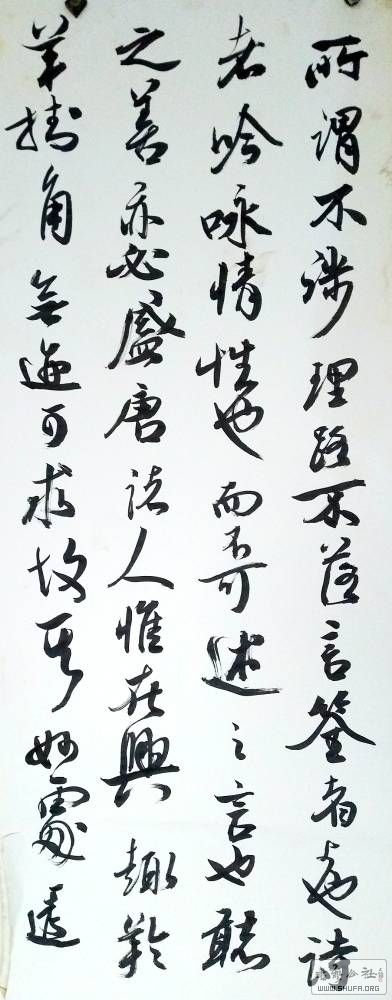 所謂不涉理路不落言筌者上也詩
者吟咏情性也而不可述之言也聽
之善亦必盛唐諸人惟在興趣羚
羊掛角無迹可求故其妙處透
WWW.SHUFA.ORG